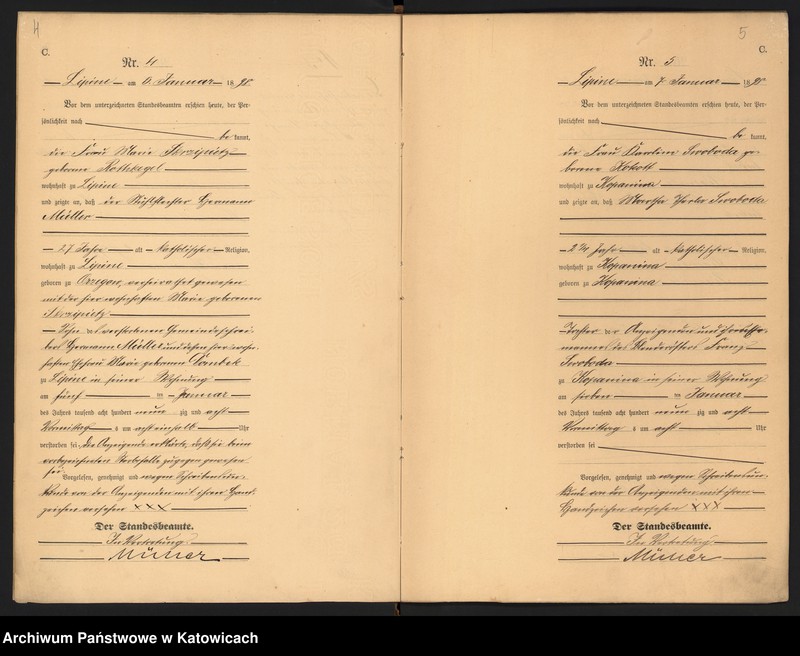 4
C.
Nr. 4
Lipine am 6. Januar 1898
Vor dem unterzeichneten Standesbeamten erschien heute, der Per-
sönlichkeit nach
be kannt,
die Frau Marie Skrzipietz
geborene Rothkegel
wohnhaft zu Lipine
und zeigte an, daß der Hermann
Müller
27 Jahre alt, katholischer Religion,
wohnhaft zu Lipine
geboren zu Orzegow, verheirathet gewesen
mit der hier wohnhaften Marie geborenen
Skrzipietz
Sohn des verstorbenen Gemeindeschrei-
bers Hermann Müller und dessen hier wohn-
haften Ehefrau Marie geborenen
zu Lipine in seiner Wohnung
am fünften Januar
des Jahres tausend acht hundert neun zig und acht
Vormittags um acht einhalb Uhr
verstorben sei, die Anzeigende erklärte, daß sie beim
vorbezeichneten Sterbefalle zugegen gewesen
sei.
Vorgelesen, genehmigt und wegen Schreibensun-
kunde von der Anzeigenden mit ihrem Hand-
zeichen versehen XXX
Der Standesbeamte.
In Vertretung
Müller
5
C.
Nr. 5
Lipine am 7. Januar 1898
Vor dem unterzeichneten Standesbeamten erschien heute, der Per-
sönlichkeit nach
be kannt,
die Frau Karoline Swoboda ge-
borene Kokott
wohnhaft zu Kopanina
und zeigte an, daß Martha Swoboda
2 3/4 Jahr alt, katholischer Religion,
wohnhaft zu Kopanina
geboren zu Kopanina
Tochter der Anzeigenden und ihres Ehe-
mannes des Franz
Swoboda
zu Kopanina in seiner Wohnung
am sieben Januar
des Jahres tausend acht hundert neun zig und acht
Vormittag um acht Uhr
verstorben sei
Vorgelesen, genehmigt und wegen Schreibensun-
kunde von der Anzeigenden mit ihrem
Handzeichen versehen XXX
Der Standesbeamte.
In Vertretung
Müller
Archiwum Państwowe w Katowicach